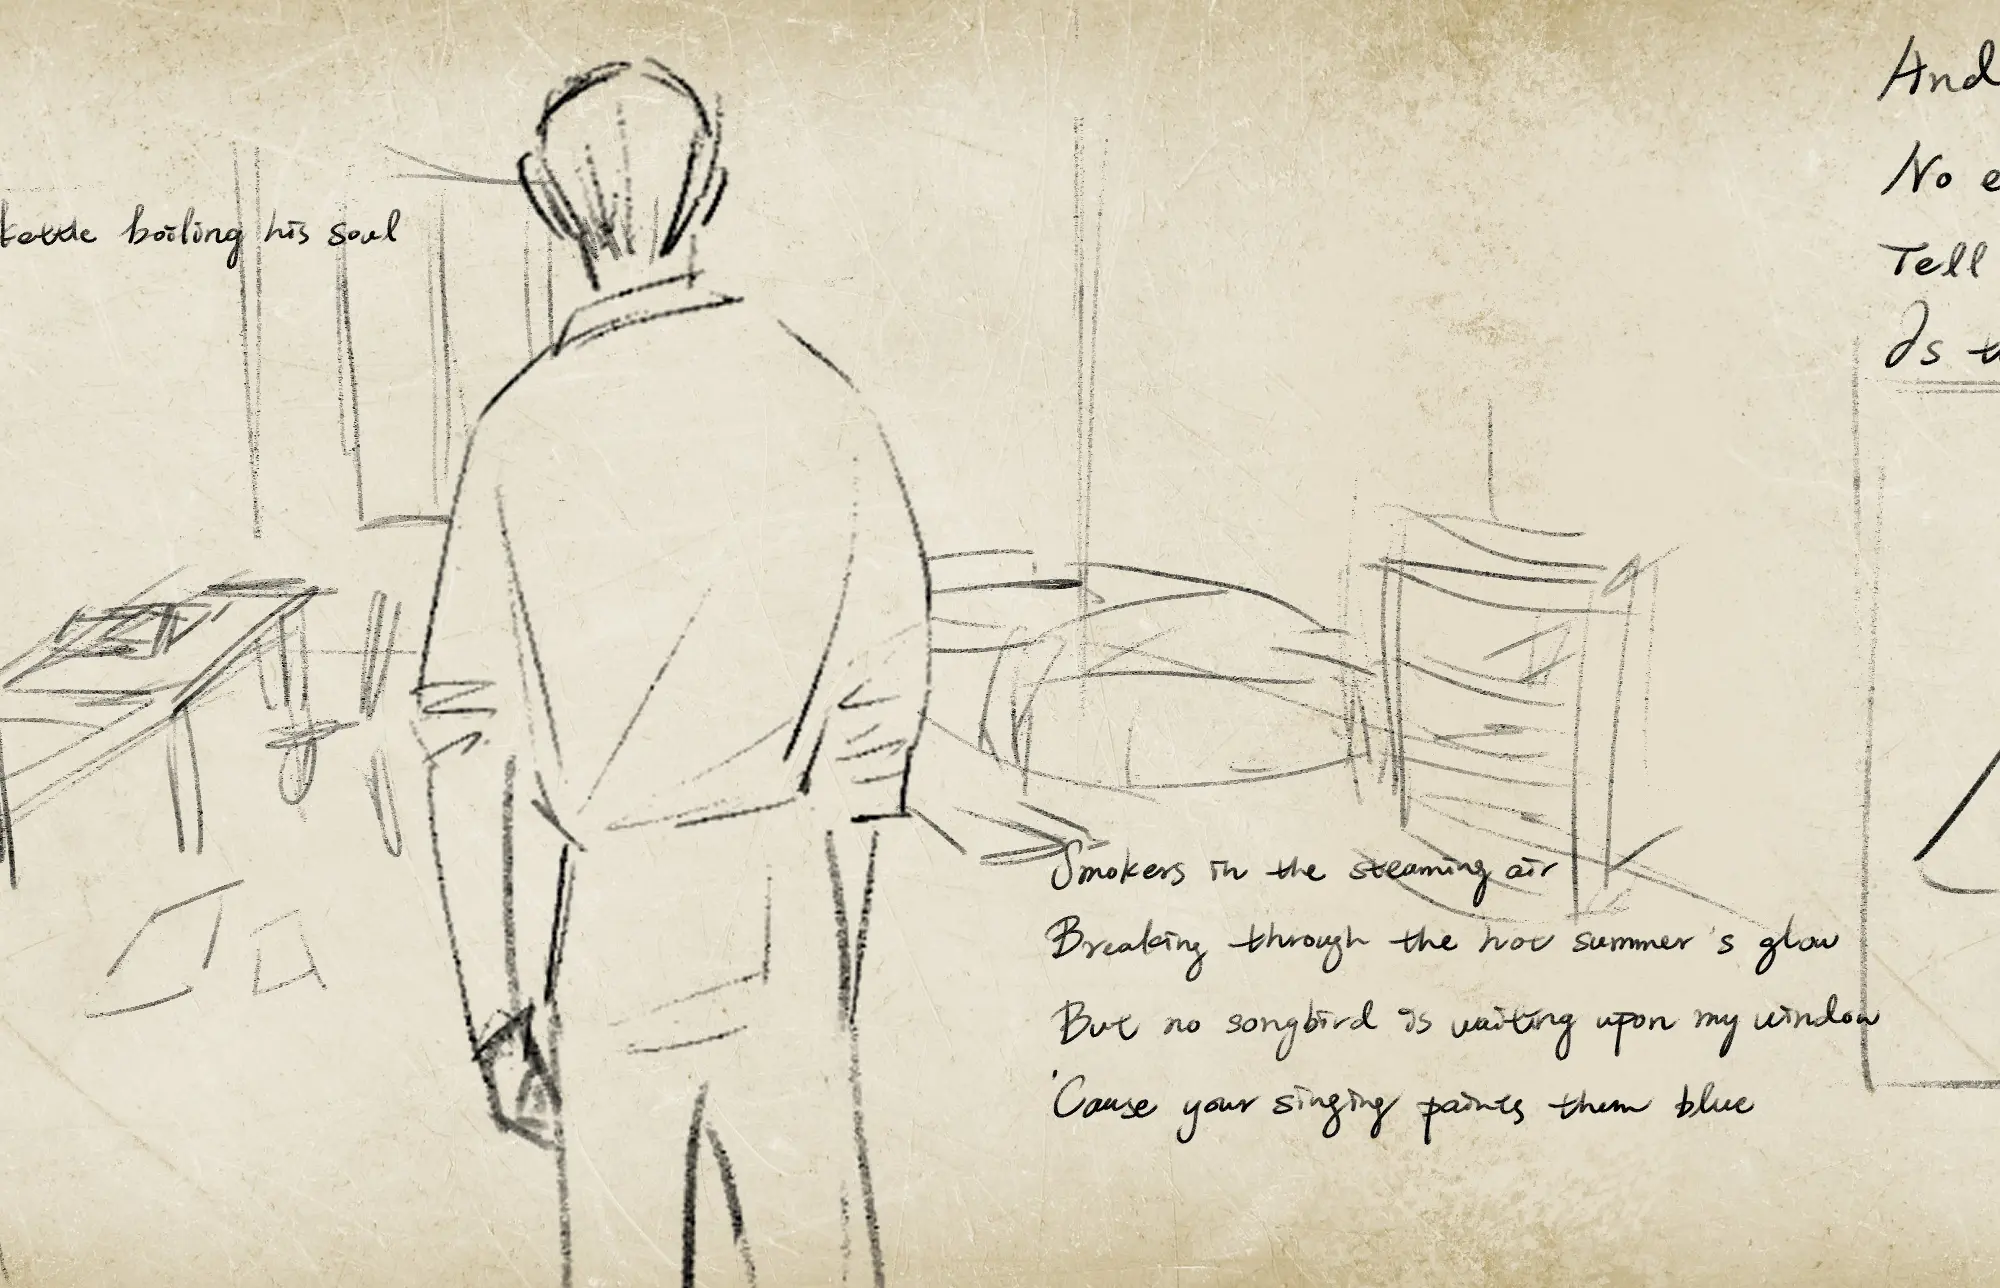 kettle boiling his soul
Smokers in the steaming air
Breaking through the hot summer's glow
But no songbird is waiting upon my window
'Cause your singing paints them blue
And
No e
Tell
Is t